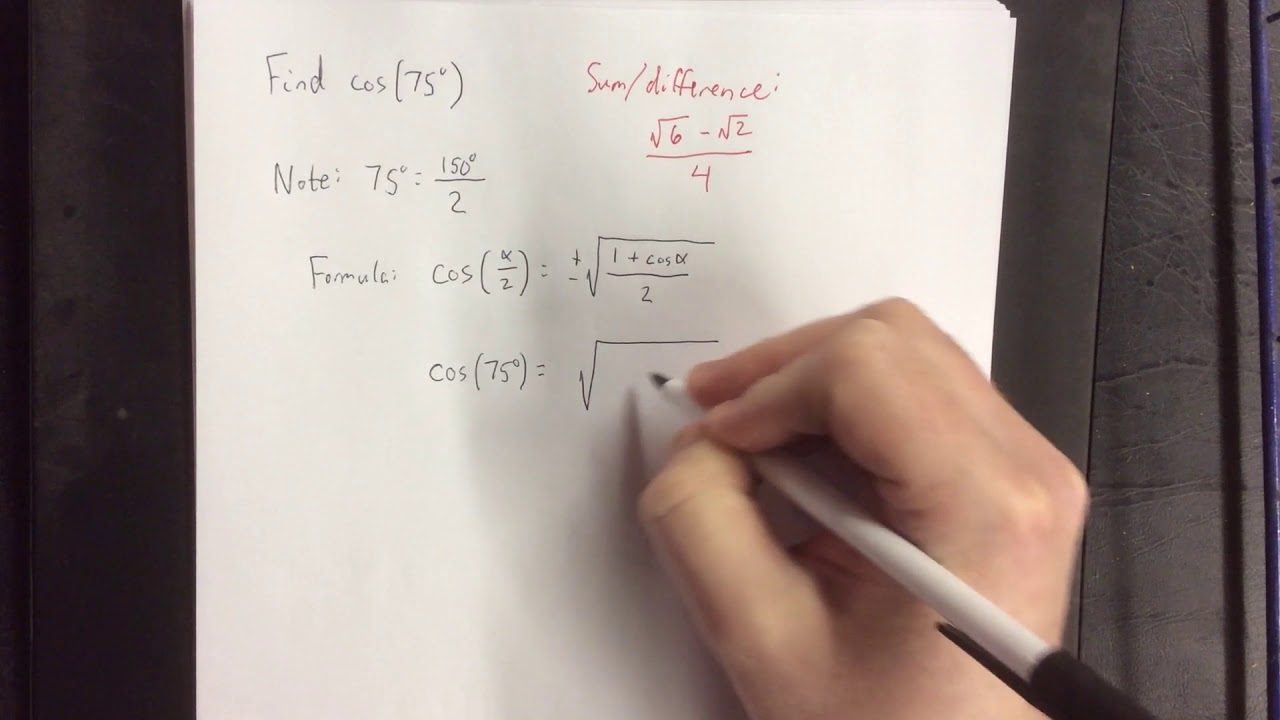 Find cos(75°)
Sum/difference:
√6 - √2
4
Note: 75° = 150°/2
Formula: cos(α/2) = ±√((1 + cosα)/2)
cos(75°) = √